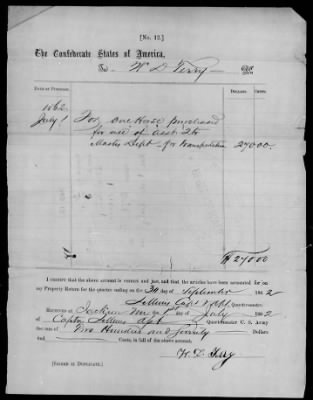 [No. 12.]
The Confederate States of America,
To W D Terry
Date of Purchase.
Dollars.
Cents.
1862
July 1
For One Horse purchased
for use of Asst Qr
Master Dept for Transportation
270 00
$ 270 00
I certify that the above account is correct and just, and that the articles have been accounted for on
my Property Return for the quarter ending on the 30 day of September 1862
Quartermaster.
Received at Jackson July 1862
of Quartermaster C. S. Army
the sum of Two Hundred and Seventy Dollars
and Cents, in full of the above account.
W. D. Terry
[Signed in Duplicate.]